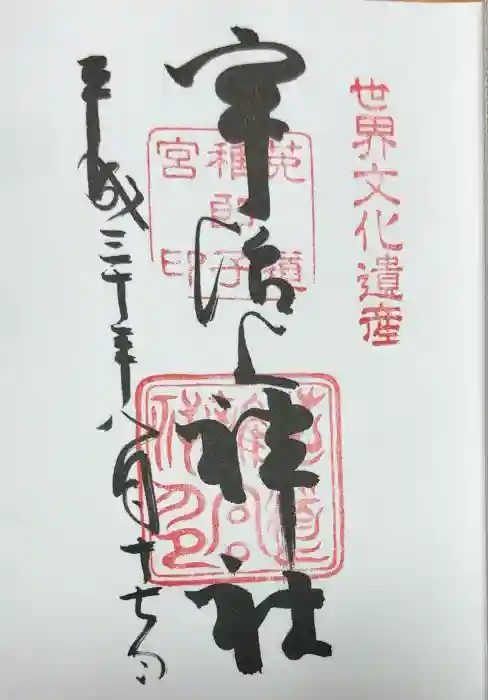 世界文化遺産
宇治上神社
菟道稚郎子宮印
平成三十年八月十七日